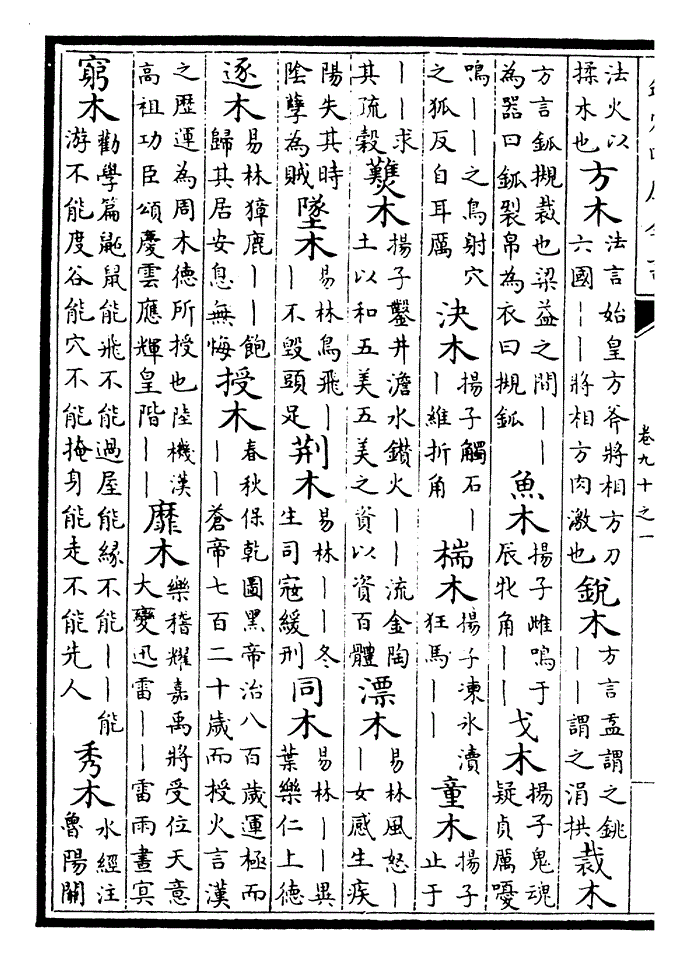 卷九十之一
法火以揉木也 方木 法言始皇方斧將相方刀六國丨丨將相方肉激也 銳木 方言盂謂之銚丨丨謂之涓抉 裁木
方言鈲摫裁也梁益之間丨丨為器曰鈲裂帛為衣曰摫鈲 魚木 揚子雌鳴于辰牝角丨丨 戈木 揚子鬼魂疑貞厲嚘
鳴丨丨之鳥射穴之狐反自耳厲 決木 揚子觸石丨丨維折角 楇木 揚子凍氷瀆狂馬丨丨 童木 揚子止于
丨丨求其疏穀 㸐木 揚子鑿井澹水鑽火丨丨流金陶土以和五美五美之資以資百體 漂木 易林風怒丨丨女感生疾
陽失其時陰孽為賊 墜木 易林鳥飛丨丨不毀頭足 荆木 易林丨丨冬生司寇緩刑 同木 易林丨丨異葉樂仁上德
逐木 易林獐鹿丨丨飽歸其居安息無悔 授木 春秋保乾圖黑帝治八百歲運極而丨丨蒼帝七百二十歲而授火言漢
之歴運為周木德所授也陸機漢高祖功臣頌慶雲應輝皇階丨丨 靡木 樂稽耀嘉禹將受位天意大變迅雷丨丨雷雨晝㝠
窮木 勸學篇鼫鼠能飛不能過屋能緣不能丨丨能游不能度谷能穴不能掩身能走不能先人 秀木 水經注魯陽關